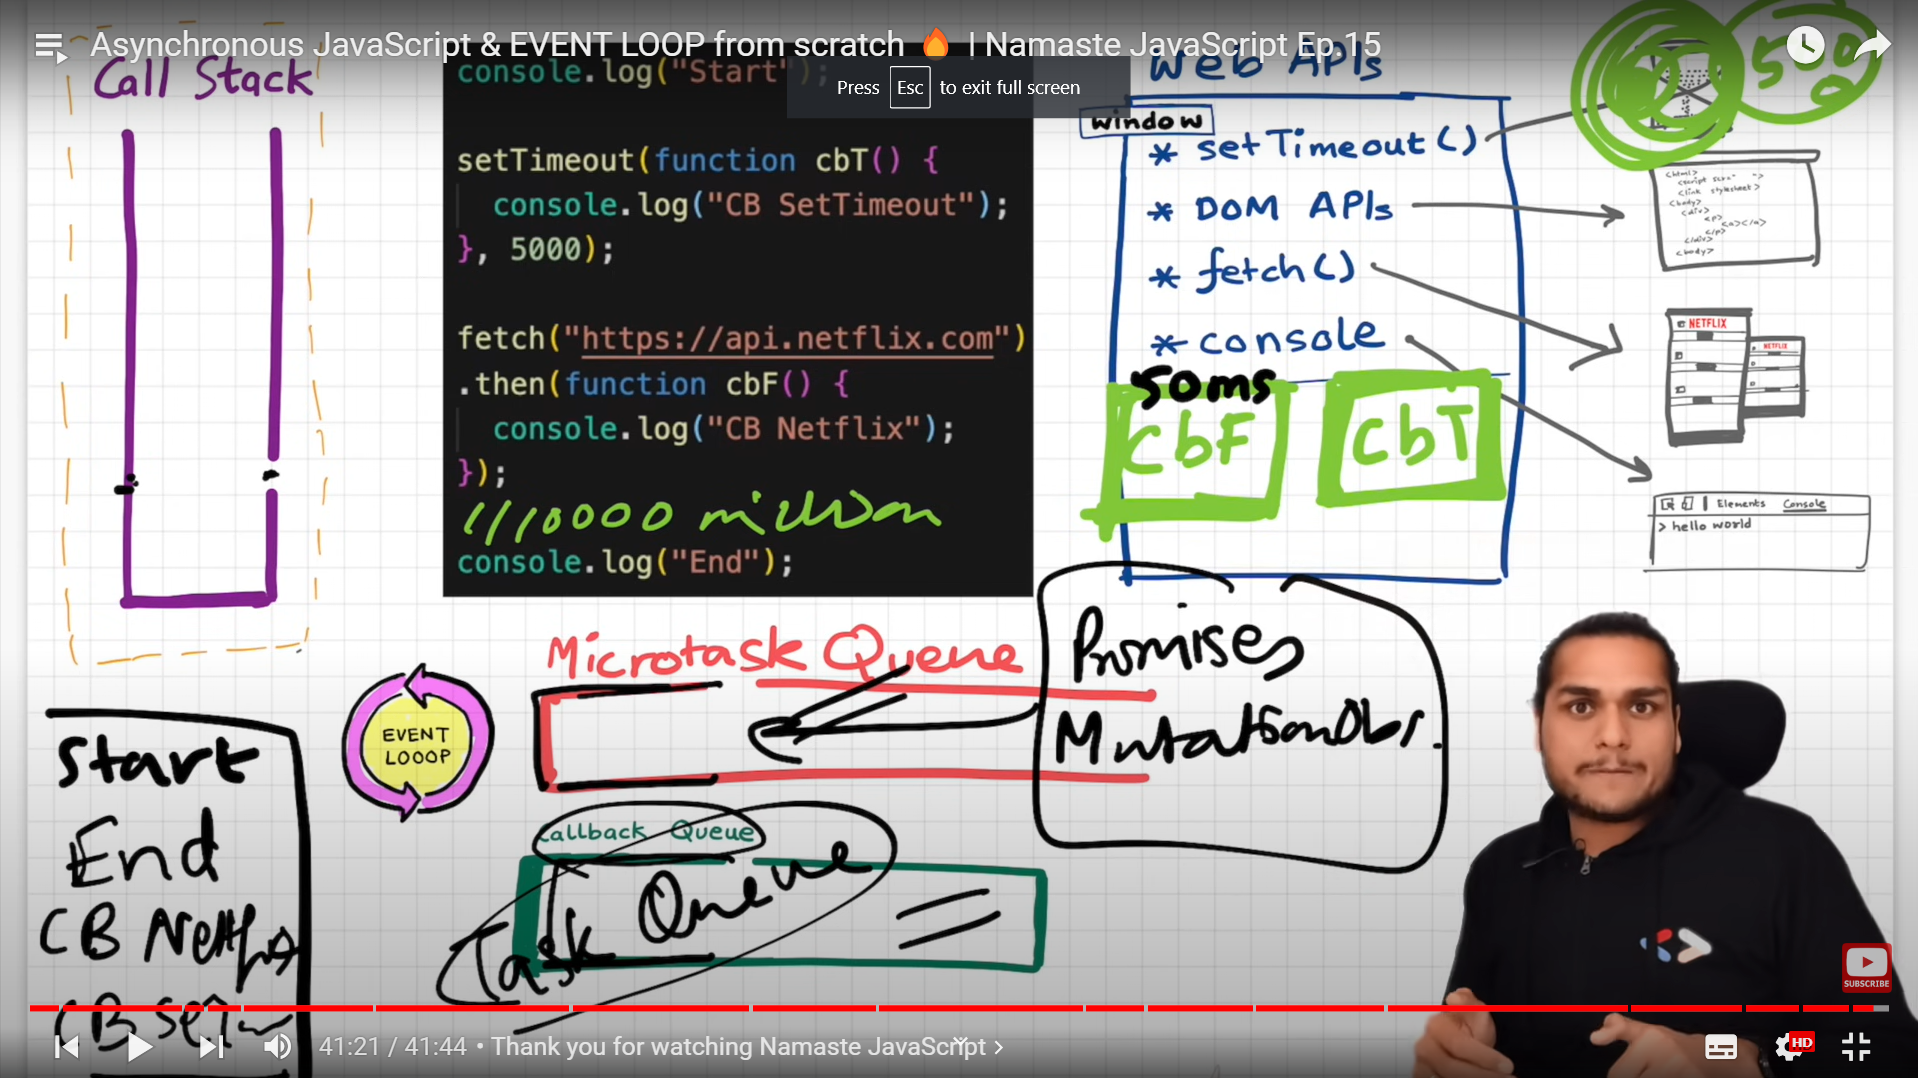 Asynchronous JavaScript & EVENT LOOP from scratch 🔥 | Namaste JavaScript Ep.15
Press Esc to exit full screen
Call Stack
console.log("Start");
setTimeout(function cbT() {
console.log("CB SetTimeout");
}, 5000);
fetch("https://api.netflix.com")
.then(function cbF() {
console.log("CB Netflix");
});
///10000 million
console.log("End");
Web APIs
window
* setTimeout()
* DOM APIs
* fetch()
* console
50ms
CbF
CbT
500
<html>
<link stylesheet>
<body>
<div>
<p>
<a></a>
</p>
</div>
<body>
NETFLIX
NETFLIX
Elements Console
> hello world
Promises
MutationObs.
Microtask Queue
EVENT
LOOOP
Callback Queue
Task Queue
Start
End
CB Netflix
CB
SUBSCRIBE
41:21 / 41:44 • Thank you for watching Namaste JavaScript
HD